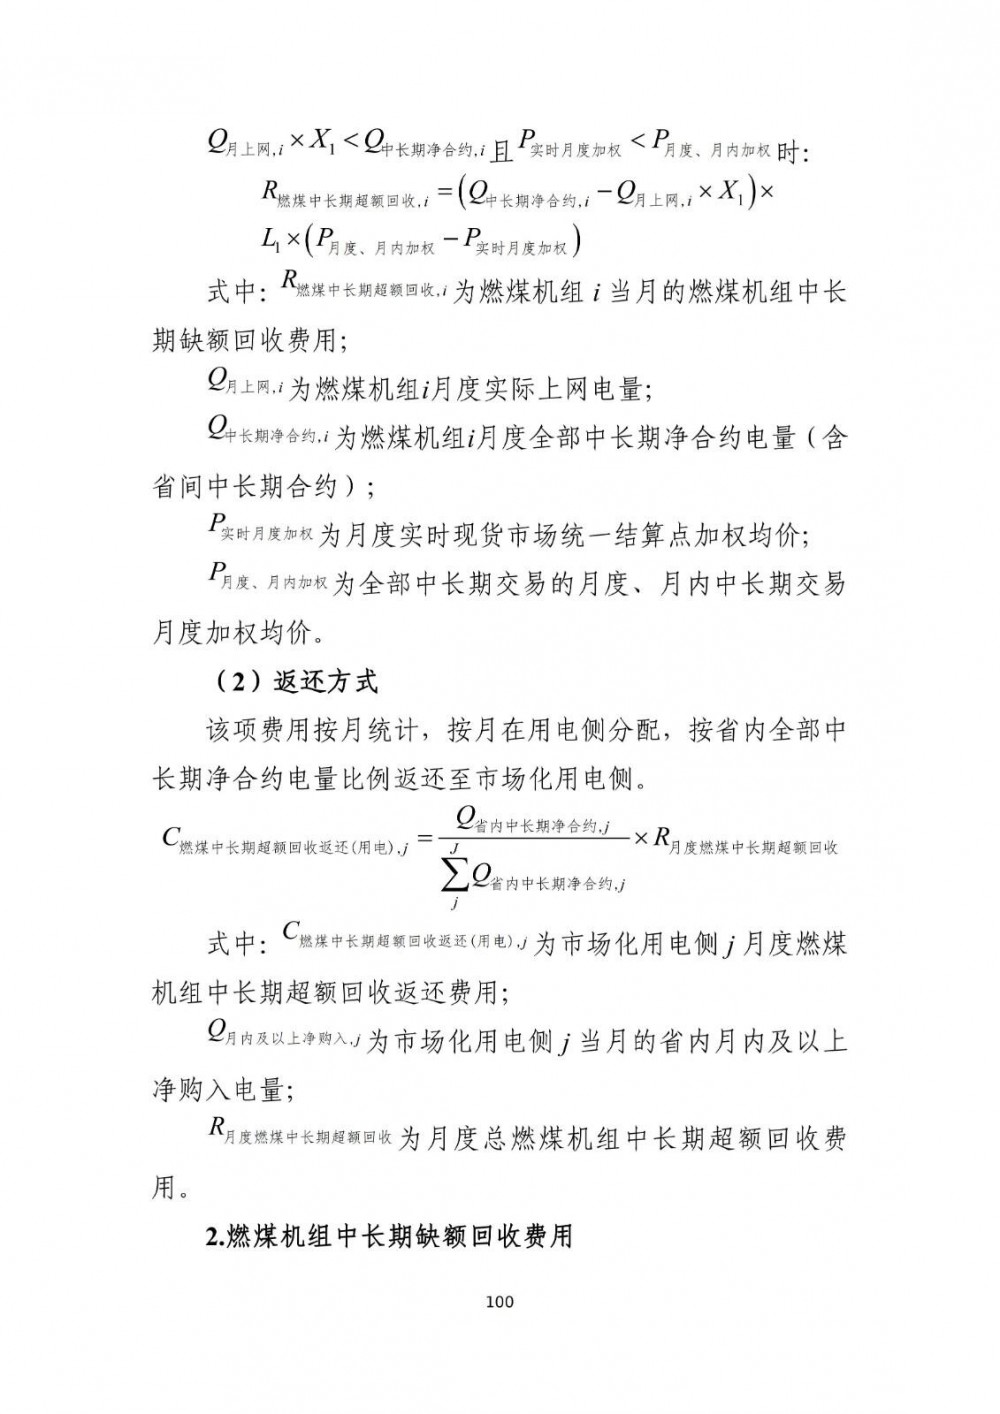 Q月上网,i×X1<Q中长期净合约,i且P实时月度加权<P月度、月内加权时:
R燃煤中长期超额回收,i=(Q中长期净合约,i-Q月上网,i×X1)×
L1×(P月度、月内加权-P实时月度加权)
式中：R燃煤中长期超额回收,i为燃煤机组 i 当月的燃煤机组中长
期缺额回收费用；
Q月上网,i为燃煤机组i月度实际上网电量；
Q中长期净合约,i为燃煤机组i月度全部中长期净合约电量（含
省间中长期合约）；
P实时月度加权为月度实时现货市场统一结算点加权均价；
P月度、月内加权为全部中长期交易的月度、月内中长期交易
月度加权均价。
（2）返还方式
该项费用按月统计，按月在用电侧分配，按省内全部中
长期净合约电量比例返还至市场化用电侧。
C燃煤中长期超额回收返还(用电),j=Q省内中长期净合约,j/∑jJQ省内中长期净合约,j×R月度燃煤中长期超额回收
式中：C燃煤中长期超额回收返还(用电),j为市场化用电侧 j 月度燃煤
机组中长期超额回收返还费用；
Q月内及以上净购入,j为市场化用电侧 j 当月的省内月内及以上
净购入电量；
R月度燃煤中长期超额回收为月度总燃煤机组中长期超额回收费
用。
2.燃煤机组中长期缺额回收费用
100